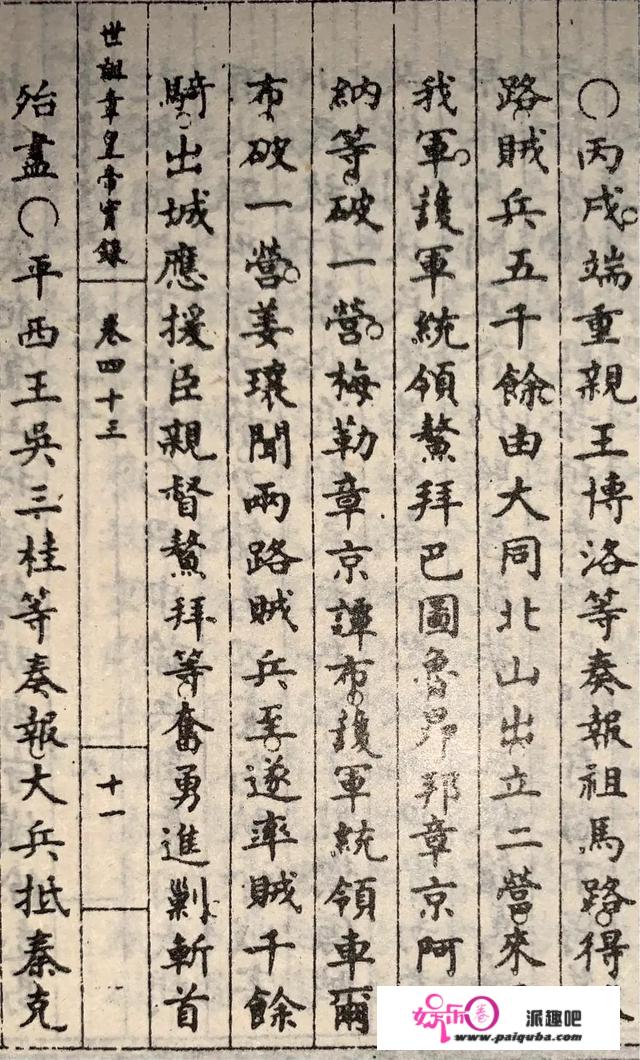 〇丙戌端重親王博洛等奏報祖馬路得
路賊兵五千餘由大同北山出立二營來
我軍護軍統領鰲拜巴圖魯昂邦章京阿
納等破一營梅勒章京譚布護軍統領車爾
布破一營姜瓖聞兩路賊兵至遂率賊千餘
騎出城應援臣親督鰲拜等奮勇進剿斬首
世祖章皇帝實錄 卷四十三 十一
殆盡〇平西王吳三桂等奏報大兵抵秦克
娱乐卷 派趣吧
www.paiquba.com